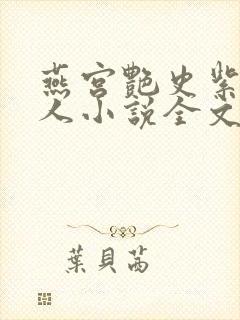 燕宮艷史紫
人小說全文
葉貝茜